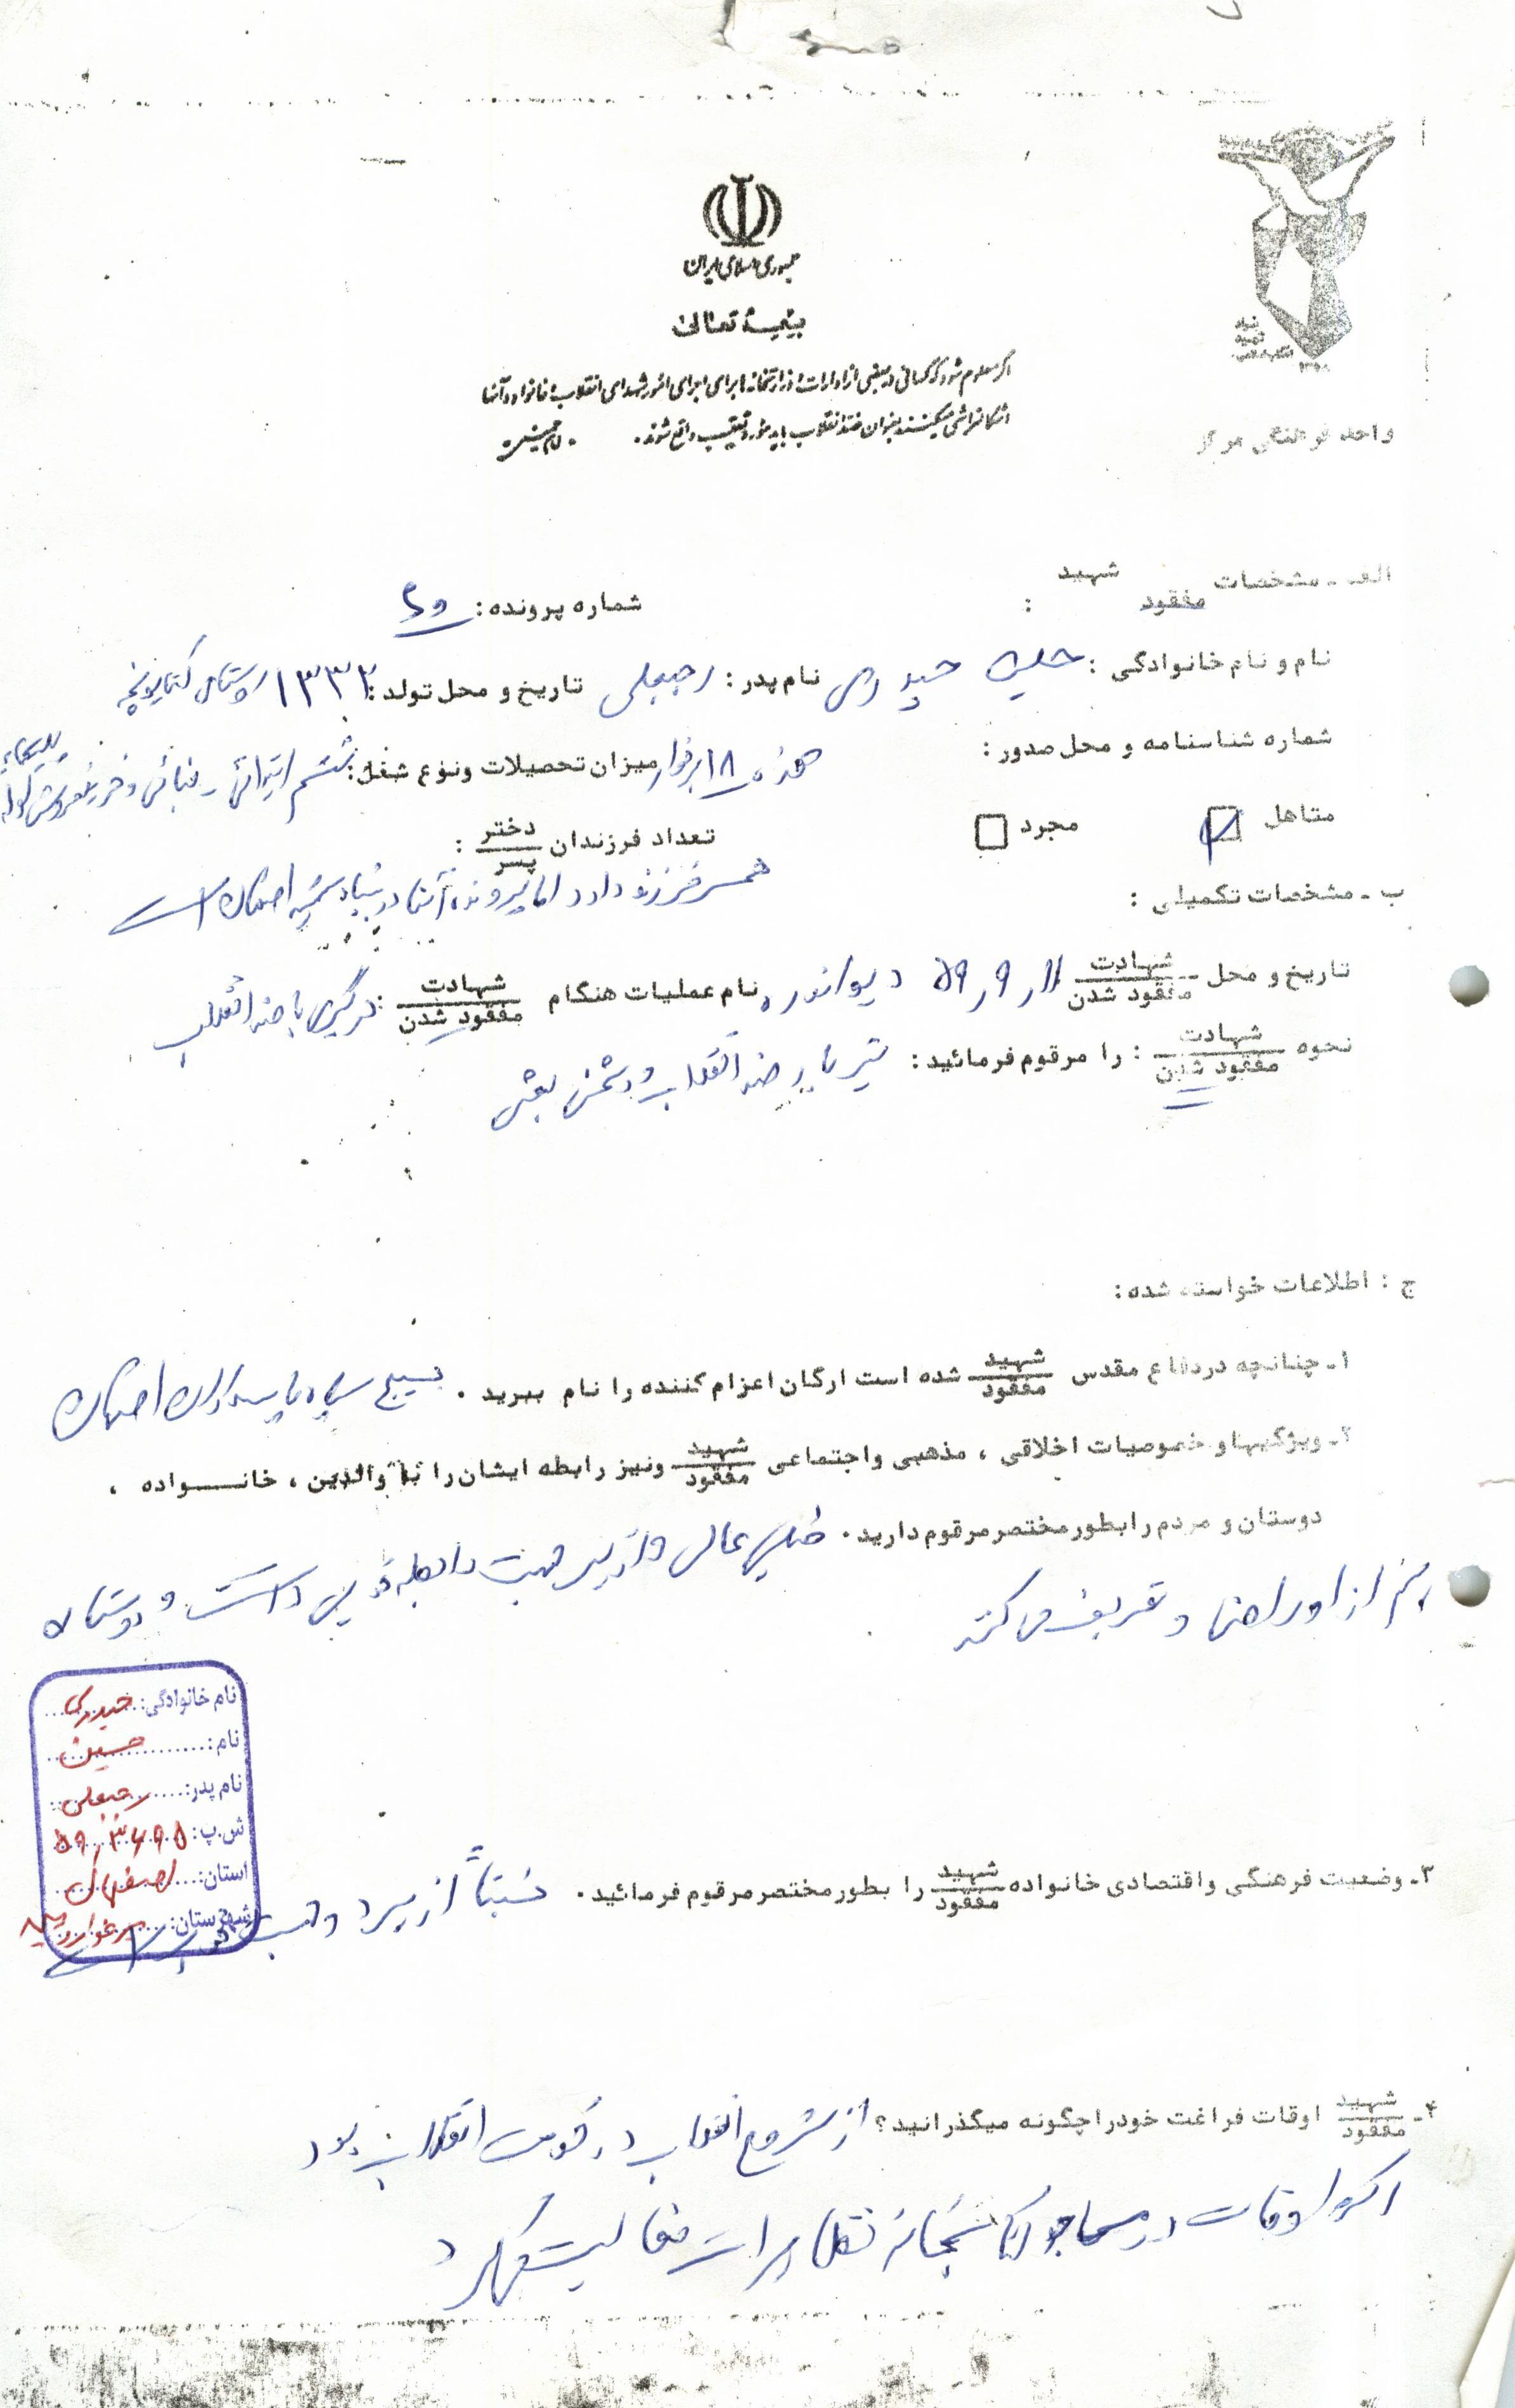 جمهوری اسلامی ایران
بسمه تعالی
اگر معلوم شود که کسانی در بعضی از ادارات و وزارتخانه‌ها برای اجرای امور شهدای انقلاب و خانواده آنها
اشکالتراشی میکنند بعنوان ضد انقلاب باید مورد تعقیب واقع شوند. امام خمینی
بنیاد شهید انقلاب اسلامی
واحد فرهنگی مرکز
الف - مشخصات شهید / مفقود :
شماره پرونده :
نام و نام خانوادگی : حسین حیدری نام پدر : رجبعلی تاریخ و محل تولد : ۱۳۳۲ روستای
شماره شناسنامه و محل صدور : ۱۸ برخوار میزان تحصیلات و نوع شغل : ششم ابتدائی -
متاهل ☑ مجرد □ تعداد فرزندان دختر / پسر :
همسر فرزند دارد اما پرونده آنها در بنیاد شهید اصفهان است
ب - مشخصات تکمیلی :
تاریخ و محل شهادت / مفقود شدن ۱۱ر۹ر۵۹ دیواندره نام عملیات هنگام شهادت / مفقود شدن : درگیری با ضد انقلاب
نحوه شهادت / مفقود شدن : را مرقوم فرمائید : تیر بار ضد انقلاب و دشمن بعثی
ج : اطلاعات خواسته شده :
۱- چنانچه در دفاع مقدس شهید / مفقود شده است ارگان اعزام کننده را نام ببرید . بسیج سپاه پاسداران اصفهان
۲- ویژگیها و خصوصیات اخلاقی ، مذهبی و اجتماعی شهید / مفقود و نیز رابطه ایشان را با والدین ، خانواده ،
دوستان و مردم را بطور مختصر مرقوم دارید . خیلی عالی و از هر جهت رابطه خوبی داشت و دوستان
نیز از او راضی و تعریف می کنند
نام خانوادگی : حیدری
نام : حسین
نام پدر : رجبعلی
ش.پ : ۵۹٫۳۶۹۵
استان : اصفهان
شهرستان : برخوار و میمه
۳- وضعیت فرهنگی و اقتصادی خانواده شهید / مفقود را بطور مختصر مرقوم فرمائید . نسبتاً از
۴- شهید / مفقود اوقات فراغت خود را چگونه میگذرانید؟ از شروع انقلاب در خدمت انقلاب بود
اکثر اوقات در مساجد کتابخانه تظاهرات فعالیت میکرد